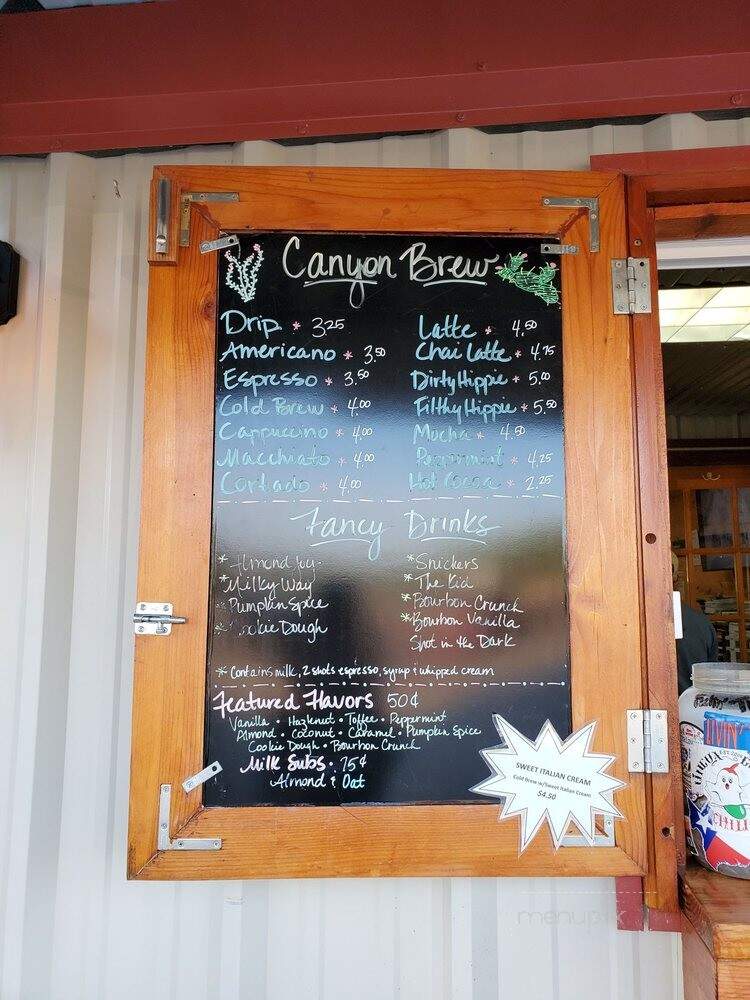 Canyon Brew
Drip * 3.25
Americano * 3.50
Espresso * 3.50
Cold Brew * 4.00
Cappuccino * 4.00
Macchiato * 4.00
Cortado * 4.00
Latte * 4.50
Chai Latte * 4.75
Dirty Hippie * 5.00
Filthy Hippie * 5.50
Mocha * 4.50
Peppermint * 4.25
Hot Cocoa * 2.25
Fancy Drinks
* Almond Joy
* Milky Way
* Pumpkin Spice
* Cookie Dough
* Snickers
* The Kid
* Bourbon Crunch
* Bourbon Vanilla
Shot in the Dark
* Contains milk, 2 shots espresso, syrup & whipped cream
Featured Flavors 50¢
Vanilla • Hazlenut • Toffee • Peppermint
Almond • Coconut • Caramel • Pumpkin Spice
Cookie Dough • Bourbon Crunch
Milk Subs • 75¢
Almond & Oat
SWEET ITALIAN CREAM
Cold Brew w/Sweet Italian Cream
$4.50
CHILI
menupix